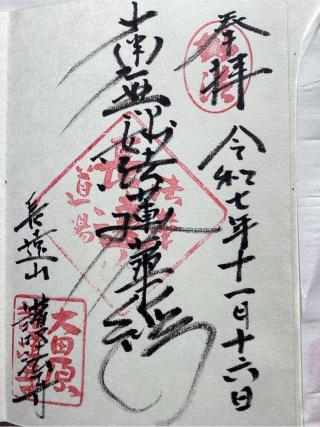 奉拝
令和七年十一月十六日
南無妙法蓮華経
長遠山
道場
大田原